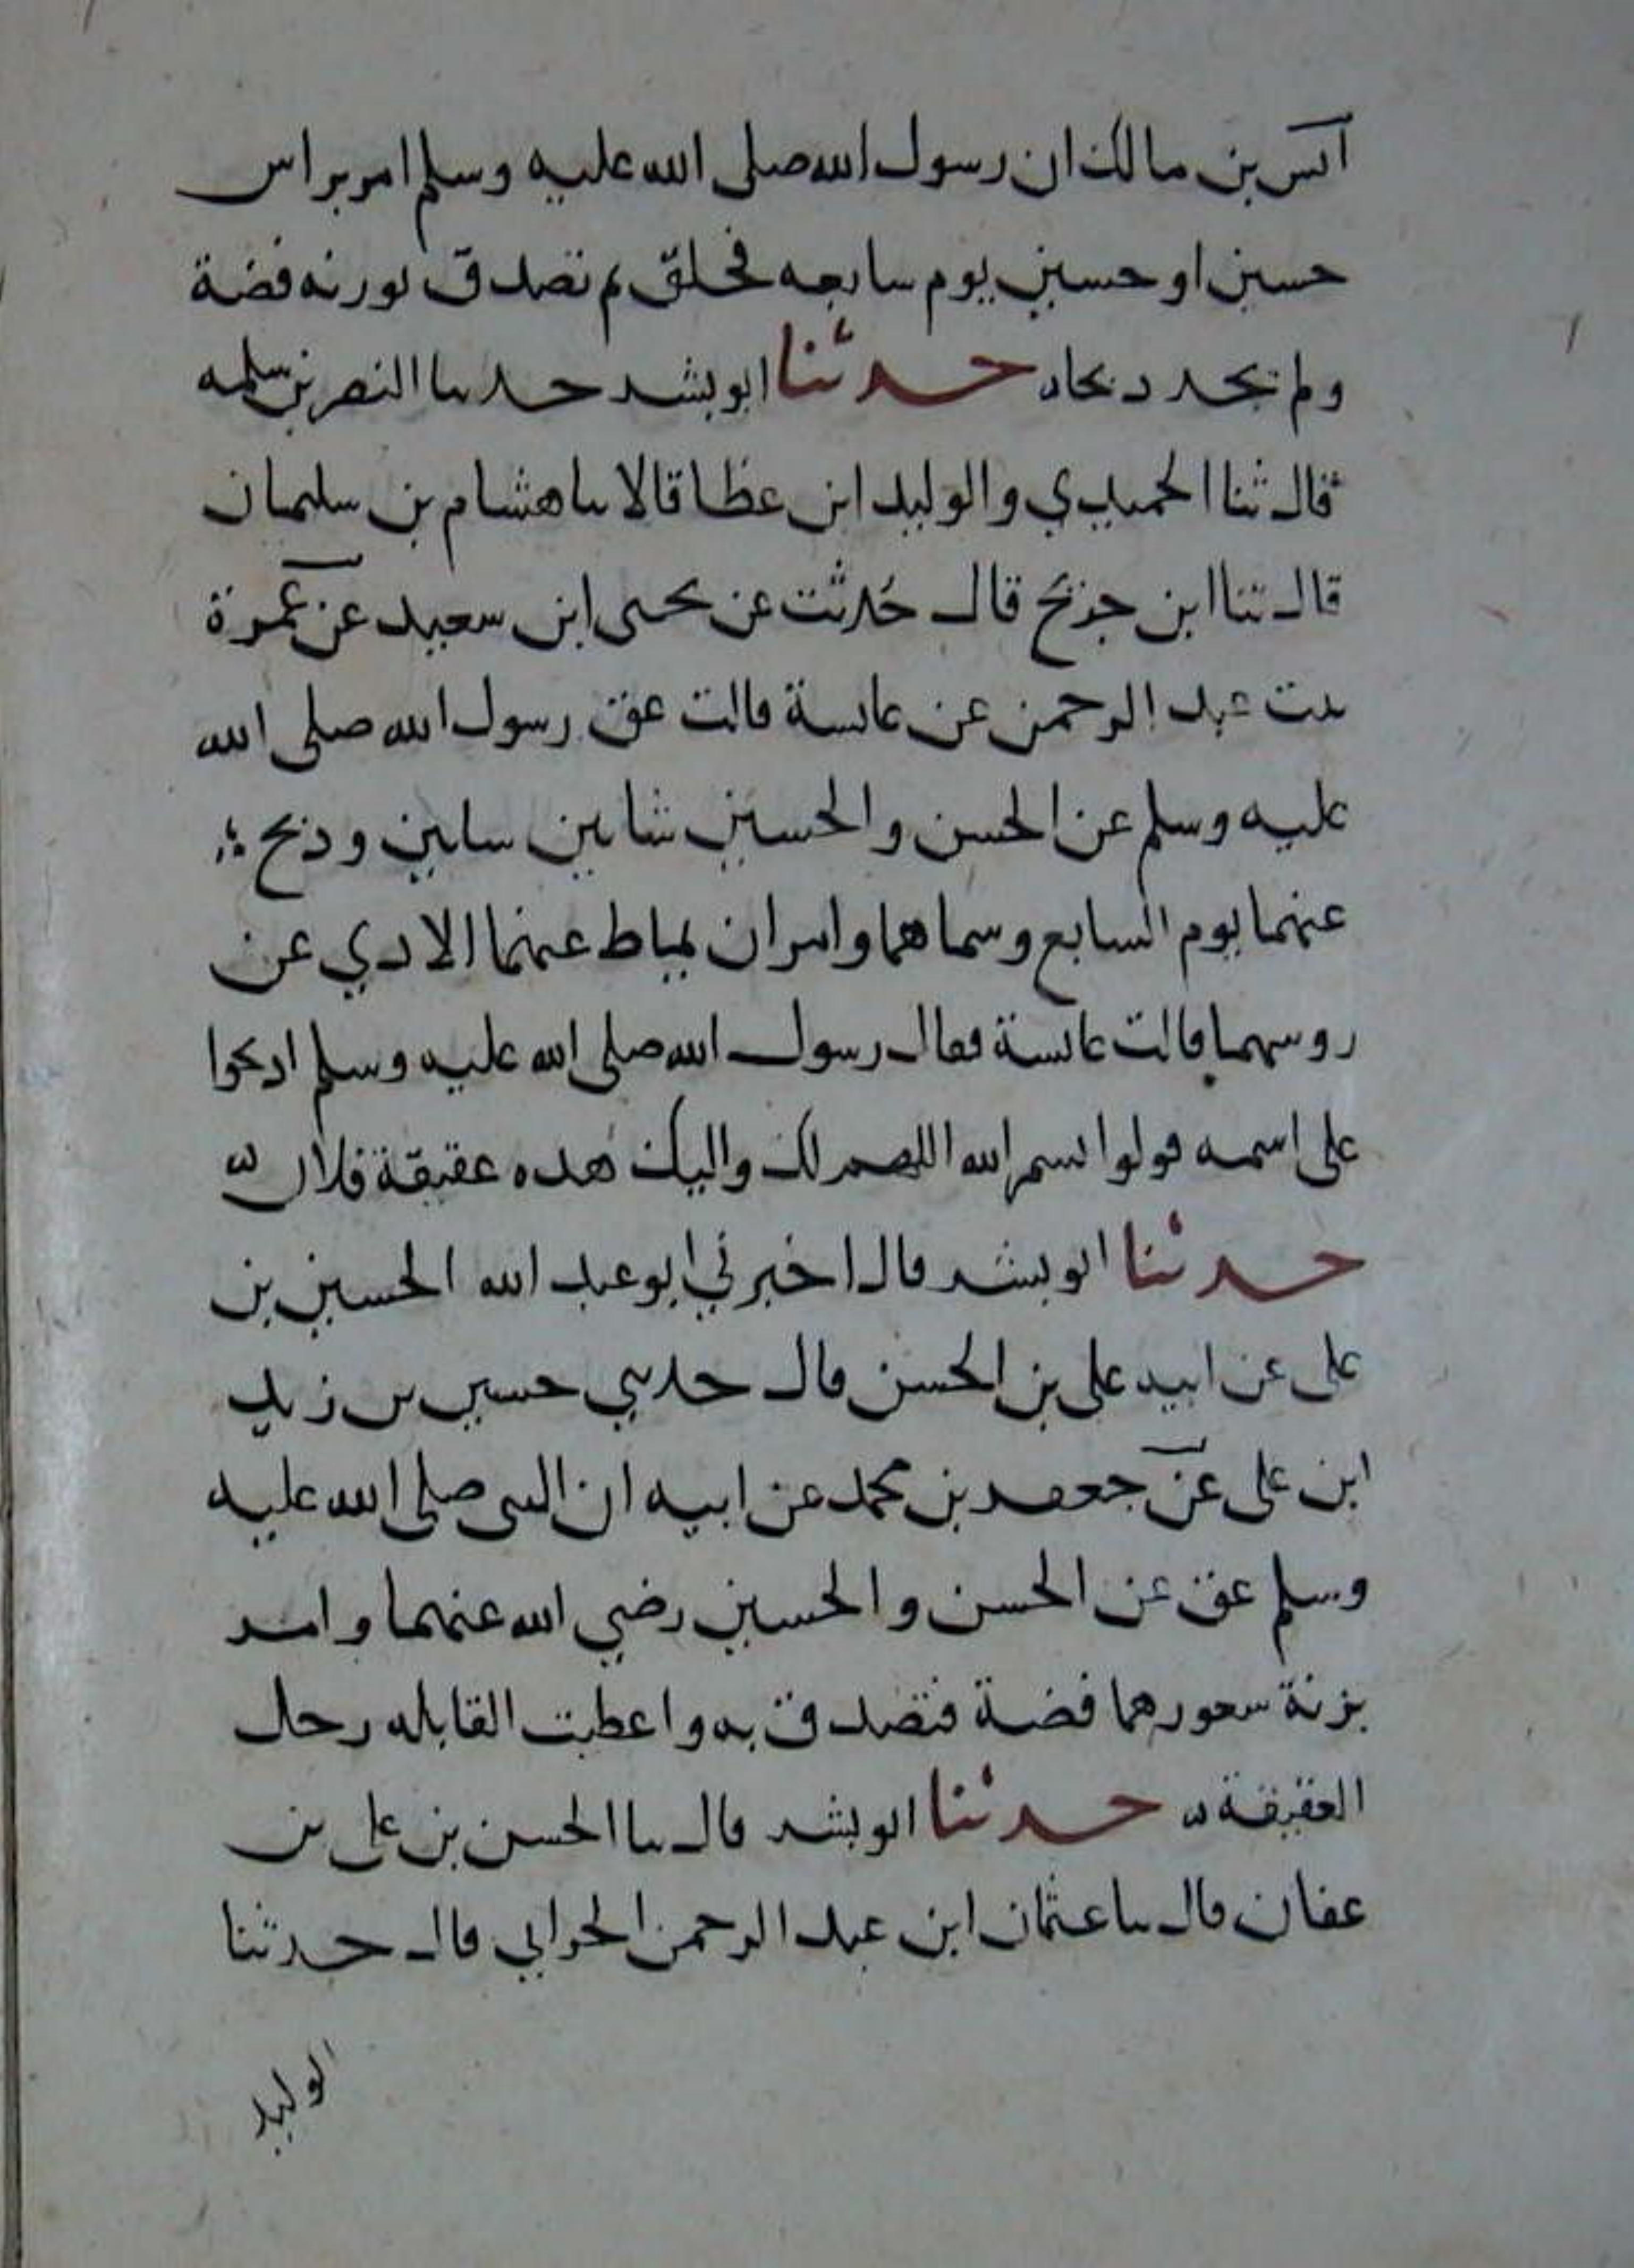 انس بن مالك ان رسول الله صلى الله عليه وسلم امر براس
حسين او حسين يوم سابعه فحلق ثم تصدق بوزنه فضة
ولم يجد ذبحا حدثنا ابو بشر حدثنا النضر بن سلمه
قال ثنا الحميدي والوليد ابن عطا قالا ثنا هشام بن سليمان
قال ثنا ابن جريج قال حُدثت عن يحيى ابن سعيد عن عمرة
بنت عبد الرحمن عن عائشة قالت عق رسول الله صلى الله
عليه وسلم عن الحسن والحسين شاتين شاتين وذبح
عنهما يوم السابع وسماهما وامر ان يماط عنهما الاذي عن
روسهما قالت عائشة فقال رسول الله صلى الله عليه وسلم اذبحوا
على اسمه قولوا بسم الله اللهم لك واليك هذه عقيقة فلان
حدثنا ابو بشر قال اخبرني ابو عبد الله الحسين بن
على عن ابيه على بن الحسن قال حدثني حسين بن زيد
ابن على عن جعفر بن محمد عن ابيه ان النبى صلى الله عليه
وسلم عق عن الحسن والحسين رضي الله عنهما وامر
بزنة شعورهما فضة فتصدق به واعطيت القابله رجل
العقيقة حدثنا ابو بشر قال ثنا الحسن بن على بن
عفان قال ثنا عثمان ابن عبد الرحمن الحراني قال حدثنا
الوليد